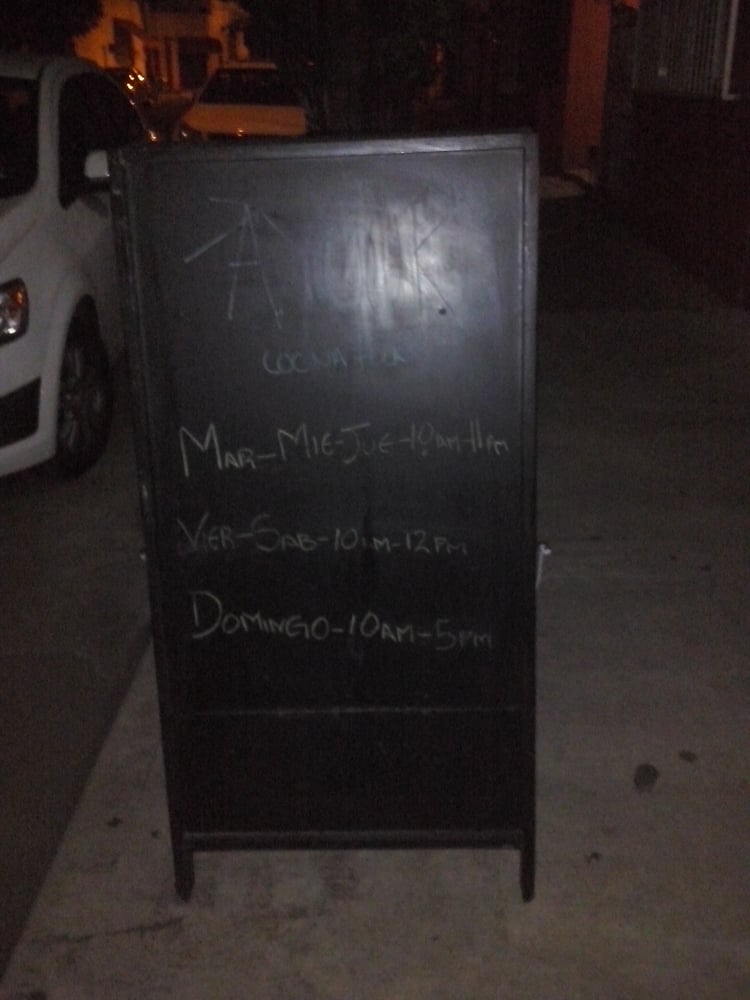 MAR-MIE-JUE-10AM-11PM
VIER-SAB-10AM-12PM
DOMINGO-10AM-5PM